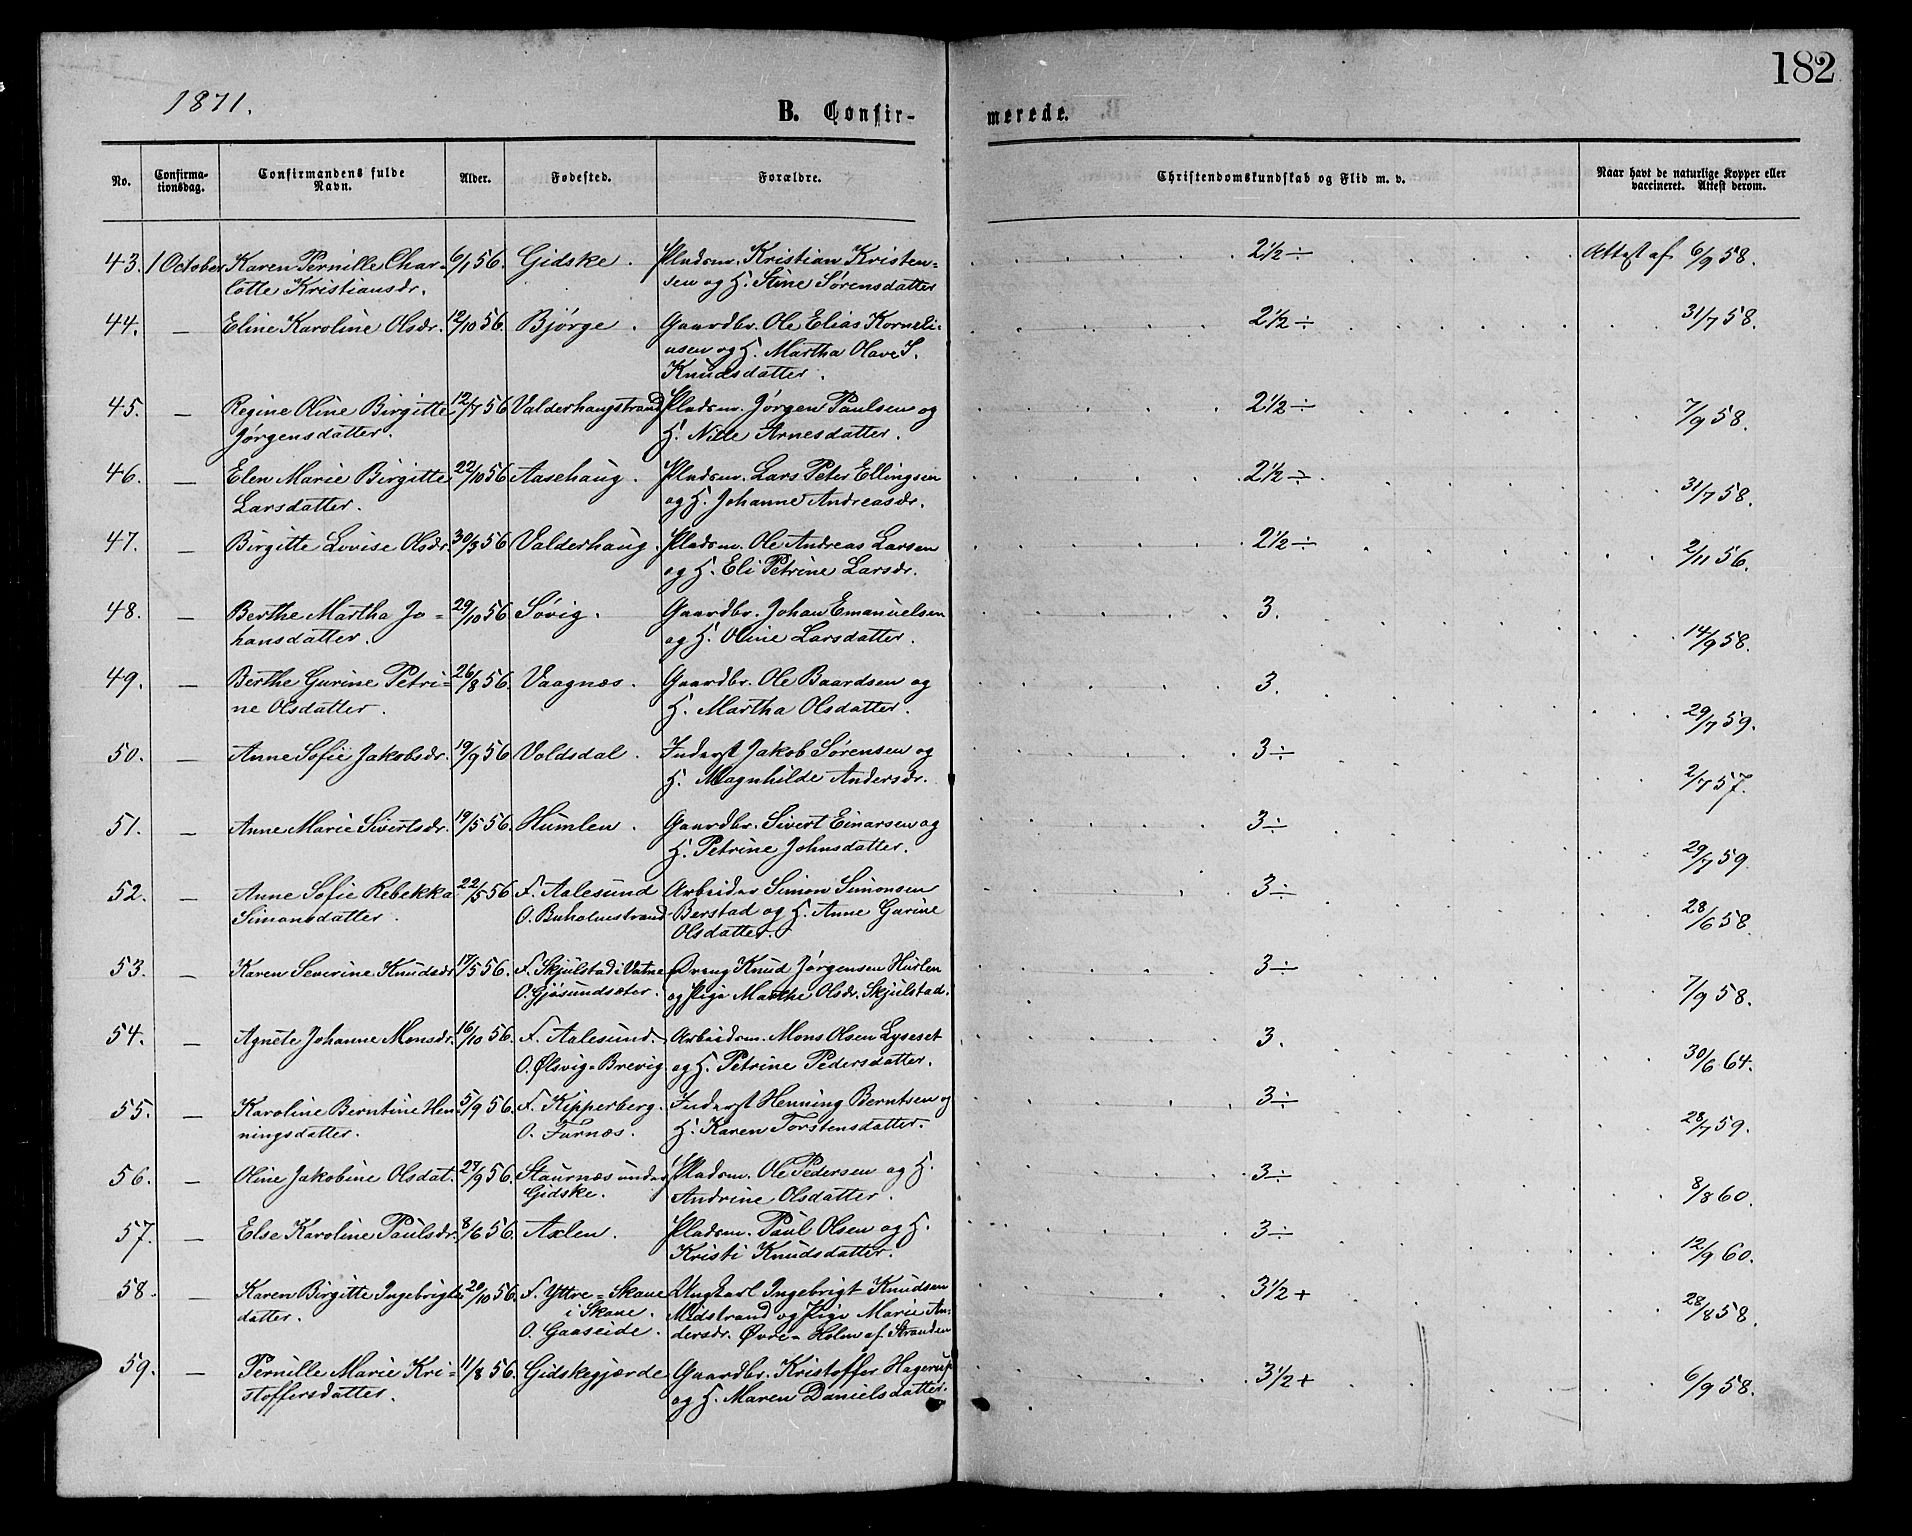 182
1871.
B. Confir- merede.
No. Confirma- Confirmandens fulde Alder. Fødested. Forældre. Christendomskundskab og Flid m. v. Naar havt de naturlige Kopper eller
tionsdag. Navn. vaccineret. Attest derom.
43. 1 October Karen Pernille Char- 6/1 56. Gidske. Pladsm. Kristian Kristen= 2½÷ Attest af 6/9 58.
lotte Kristiansdr. sen og H. Stine Sørensdatter
44. — Eline Karoline Olsdr. 12/10 56. Bjørge. Gaardbr. Ole Elias Korneli- 2½÷ 31/7 58.
usen og H. Martha Olave S.
Knudsdatter.
45. — Regine Oline Birgitte 12/7 56 Valderhaugstrand Pladsm. Jørgen Paulsen og 2½÷ 7/9 58.
Jørgensdatter. H. Nille Arnesdatter.
46. — Elen Marie Birgitte 22/10 56 Aasehaug. Pladsm. Lars Peter Ellingsen 2½÷ 31/7 58.
Larsdatter. og H. Johanne Andreasdr.
47. — Birgitte Lovise Olsdr. 30/3 56 Valderhaug. Pladsm. Ole Andreas Larsen 2½÷ 2/11 56.
og H. Eli Petrine Larsdr.
48. — Berthe Martha Jo= 29/10 56 Søvig. Gaardbr. Johan Emanuelsen 3. 14/9 58.
hansdatter. og H. Oline Larsdatter.
49. — Berthe Gurine Petri- 26/8 56. Vaagnæs. Gaardbr. Ole Baardsen og 3. 29/7 59.
ne Olsdatter. H. Martha Olsdatter.
50. — Anne Sofie Jakobsdr. 19/9 56 Voldsdal. Inderst Jakob Sørensen og 3÷ 2/7 57.
H. Magnhilde Andersdr.
51. — Anne Marie Sivertsdr. 19/5 56. Humlen. Gaardbr. Sivert Einarsen og 3÷ 29/7 59
H. Petrine Johnsdatter.
52. — Anne Sofie Rebekka 22/5 56 F. Aalesund Arbeider Simon Simonsen 3÷ 28/6 58.
Simonsdatter. O. Buholmstrand. Berstad og H. Anne Gurine
Olsdatter.
53. — Karen Severine Knudsdr 17/5 56. F. Skjulstad i Vatne Dreng Knud Jørgensen Hurlen 3÷ 7/9 58.
O. Gjøsundsæter. og Pige Marthe Olsdr. Skjulstad.
54. — Agnete Johanne Monsdr. 16/10 56. F. Aalesund. Arbeidsm. Mons Olsen Lyseset 3. 30/6 64.
O. Ølsvig=Brevig. og H. Petrine Pedersdatter.
55. — Karoline Berntine Hen- 5/9 56. F. Kipperberg. Inderst Henning Berntsen og 3÷ 28/7 59.
ningsdatter. O. Furnæs. H. Karen Torstensdatter.
56. — Oline Jakobine Olsdat. 27/9 56. Staurnæs under Pladsm. Ole Pedersen og H. 3÷ 8/8 60.
Gidske. Andrine Olsdatter.
57. — Else Karoline Paulsdr. 8/6 56. Axlen. Pladsm. Paul Olsen og H. 3÷ 12/9 60.
Kristi Knudsdatter.
58. — Karen Birgitte Ingebrigts 20/10 56. F. Yttre=Skaue Ungkarl Ingebrigt Knudsen 3½+ 28/8 58.
datter. i Skaue. Midstrand og Pige Marie An-
O. Gaaseide. dersdr. Øvre= Holm af Stranden
59. — Pernille Marie Kri= 11/8 56. Gidskegjærde Gaardbr. Kristoffer Hagerup 3½+ 6/9 58.
stoffersdatter. og H. Maren Danielsdatter.